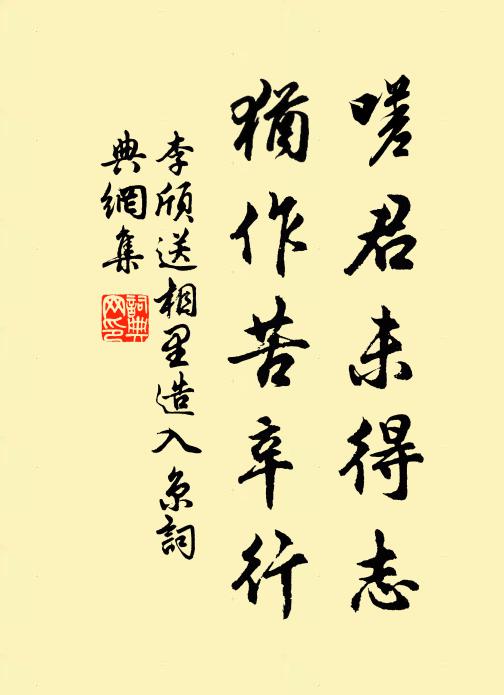 嗟君未得志
猶作苦辛行
李頎送相里造入京詞
典網集
詞典網印